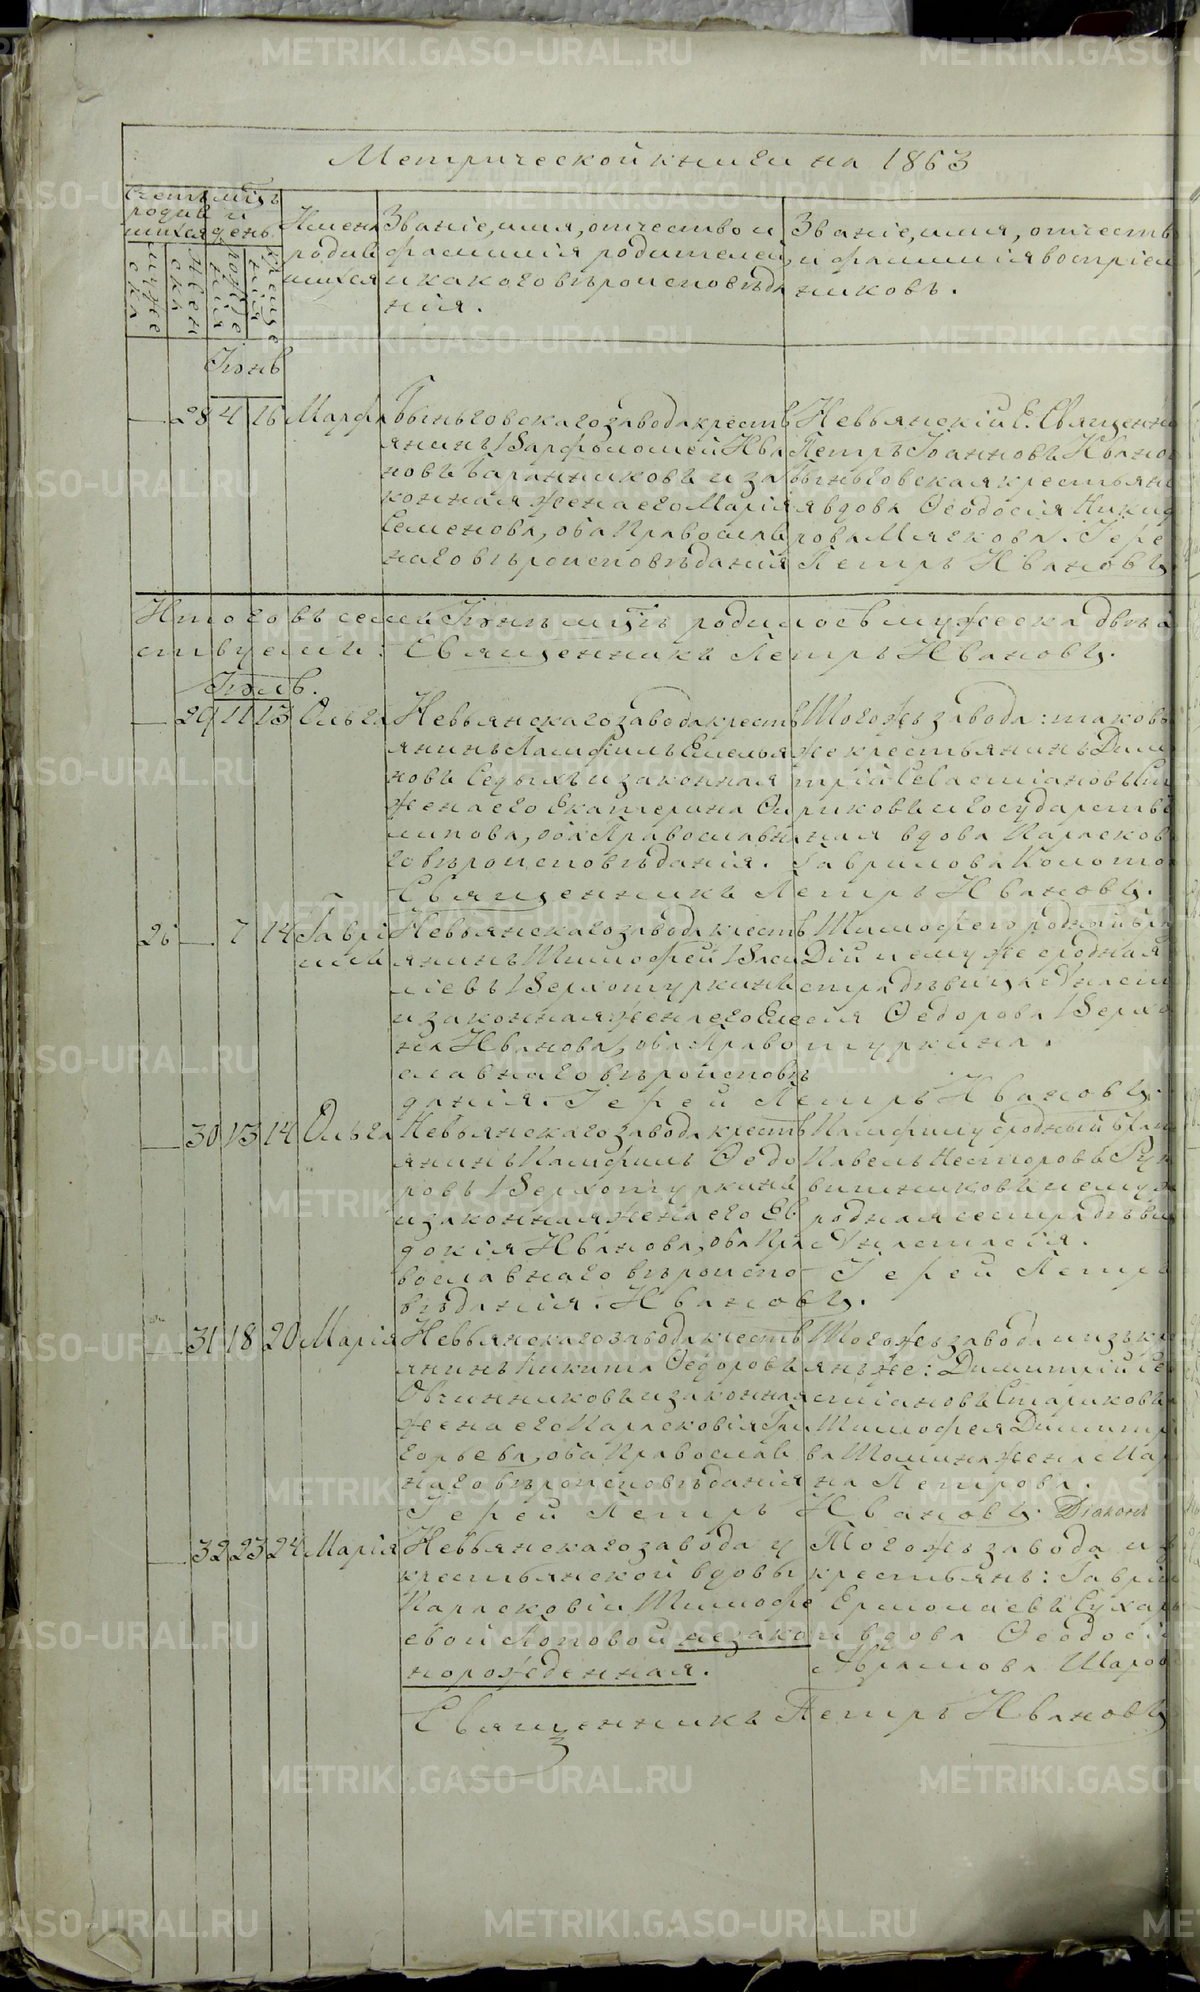 Метрической книги на 1863
Счетъ родив
шихся
мѣсяцъ и
день.
Имена
родив
шихся
Званіе, имя, отчество и
фамилія родителей,
и какого вѣроисповѣда
нія.
Званіе, имя, отчеств
и фамилія воспріем
никовъ.
муже
ска
жен
ска
рожде
нія
креще
нія
Іюнь
28 4 16 Марфа
Быньговскаго завода крестъ
янинъ Варфоломей Ива
новъ Баранниковъ и за
конная жена его Марія
Семенова, оба Православ
наго вѣроисповѣданія
Невьянскій Е. Священни
Петръ Іоанновъ Ивано
Быньговская крестьянс
я вдова Ѳеодосія Ники
рова Мягкова. Іере
Петръ Ивановъ
Итого въ семъ Іюнѣ мцѣ родилось мужеска двѣа
Священникъ Петръ Ивановъ.
Іюль.
29 11 13 Ольга
Невьянскаго завода крестъ
янинъ Памфилъ Емелья
новъ Седыхъ и законная
жена его Екатерина Фи
липова, оба Православна
го вѣроисповѣданія.
Того жъ завода: таковъ
же крестьянинъ Дим
трій Севастіановъ
риковъ и Государств
ная вдова Парасков
Гаврилова Колото
Священникъ Петръ Ивановъ.
26 7 14 Гаврі
илъ
Невьянскаго завода крестъ
янинъ Тимофей Васи
ліевъ Верхотуркинъ
и законная жена его Еле
на Иванова, оба Право
славнаго вѣроисповѣ
данія. Іерей Петръ Ивановъ.
Тимофею родной бра
Дій и ему же сродная
стра дѣвица Анаст
сія Ѳедорова Верхо
туркина.
30 13 14 Ольга
Невьянскаго завода крестъ
янинъ Памфилъ Ѳедо
ровъ Верхотуркинъ
и законная жена его Ев
докія Иванова, оба Пра
вославнаго вѣроиспо
вѣданія. Ивановъ.
Памфилу сродный бра
Павелъ Несторовъ
вишниковъ и ему ж
родная сестра дѣви
Анастасія.
Іерей Петр
31 18 20 Марія
Невьянскаго завода крестъ
янинъ Никита Ѳедоровъ
Овчинниковъ и законная
жена его Парасковія Гри
горьева, оба Православ
наго вѣроисповѣданія
Того жъ завода и изъ кр
янъ же: Димитрій Се
стіановъ Стариковъ
Тимофея Димитрі
ва Томина жена Мар
на Петрова.
Іерей Петръ Ивановъ. Діаконъ
32 23 24 Марія
Невьянскаго завода у
крестьянской вдовы
Парасковіи Тимофе
евой Поповой незако
норожденная.
Того жъ завода из
крестьянъ: Гаврі
Ермолаевъ Сухар
и вдова Ѳеодосі
Абрамова Шаро
Священникъ Петръ Ивановъ